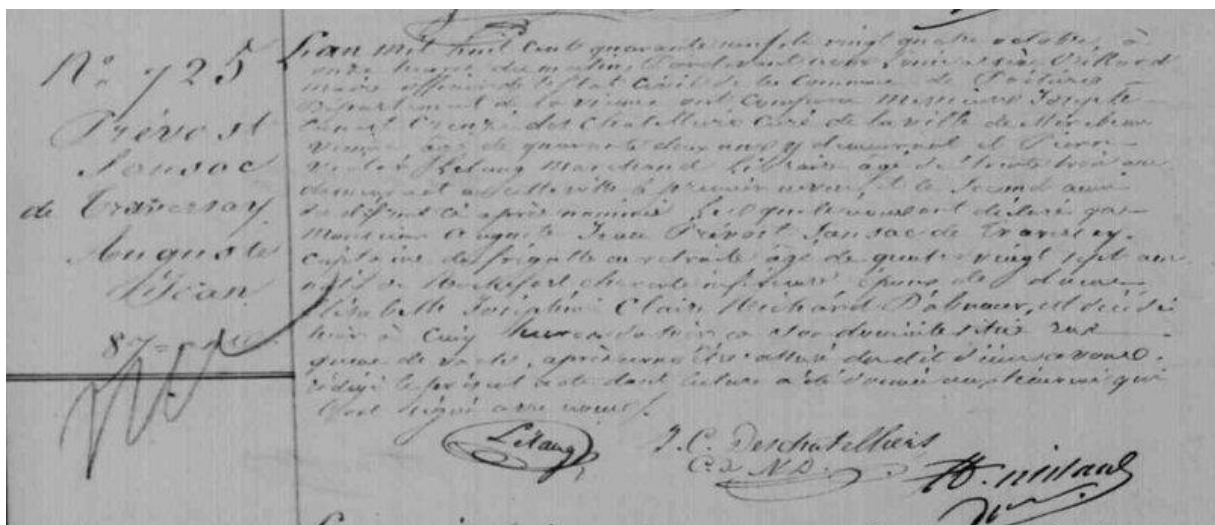 N° 725
Prévost
Sansac
de Traversay
Auguste
Jean
87 ans
L'an mil huit cent quarante neuf, le vingt quatre octobre, à
onze heures du matin, Pardevant nous
maire officier de l'état civil de la Commune de Poitiers
Département de la vienne ont comparu Messieurs Joseph
Creuzé des Chatelliers Curé de la ville de Mirebeau
vienne âgé de quarante deux ans y demeurant et Pierre
Létang Marchand Libraire âgé de trente trois ans
demeurant en cette ville le premier neveu et le second ami
du défunt ci après nommé Lesquels nous ont déclaré que
Monsieur Auguste Jean Prévost Sansac de Traversay,
capitaine de frégatte en retraite âgé de quatre vingt sept ans
natif de Rochefort charente inférieure, époux de dame
Elisabeth Joséphine Claire Richard D'abnour, est décédé
hier à Cinq heures du soir en son domicile situé rue
queue de vache, après nous être assuré du dit décès avons
rédigé le présent acte dont lecture a été donnée aux témoins qui
l'ont signé avec nous.
Létang
J. C. Deschatelliers
C. D. N. D.